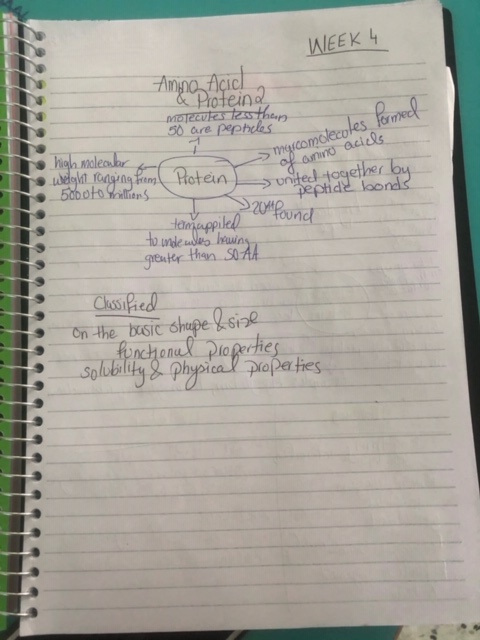 WEEK 4
Amino Acid
& Protein 2
molecules less than
50 are peptides
high molecular
weight ranging from
5000 to millions
Protein
mycomolecules formed
of amino acids
united together by
peptide bonds
20 AA
found
term applied
to molecules having
greater than 50 AA
Classified
on the basic shape & size
functional properties
solubility & physical properties